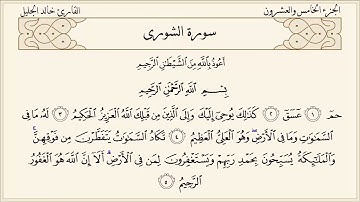 الجزء الخامس والعشرون
القارئ خالد الجليل
سورة الشورى
أعوذ بالله من الشيطن الرجيم
بِسْمِ ٱللَّهِ ٱلرَّحْمَٰنِ ٱلرَّحِيمِ
حمٓ ١ عٓسٓقٓ ٢ كَذَٰلِكَ يُوحِىٓ إِلَيْكَ وَإِلَى ٱلَّذِينَ مِن قَبْلِكَ ٱللَّهُ ٱلْعَزِيزُ ٱلْحَكِيمُ ٣ لَهُۥ مَا فِى
ٱلسَّمَٰوَٰتِ وَمَا فِى ٱلْأَرْضِ وَهُوَ ٱلْعَلِىُّ ٱلْعَظِيمُ ٤ تَكَادُ ٱلسَّمَٰوَٰتُ يَتَفَطَّرْنَ مِن فَوْقِهِنَّ ۚ
وَٱلْمَلَٰٓئِكَةُ يُسَبِّحُونَ بِحَمْدِ رَبِّهِمْ وَيَسْتَغْفِرُونَ لِمَن فِى ٱلْأَرْضِ ۗ أَلَآ إِنَّ ٱللَّهَ هُوَ ٱلْغَفُورُ
ٱلرَّحِيمُ ٥